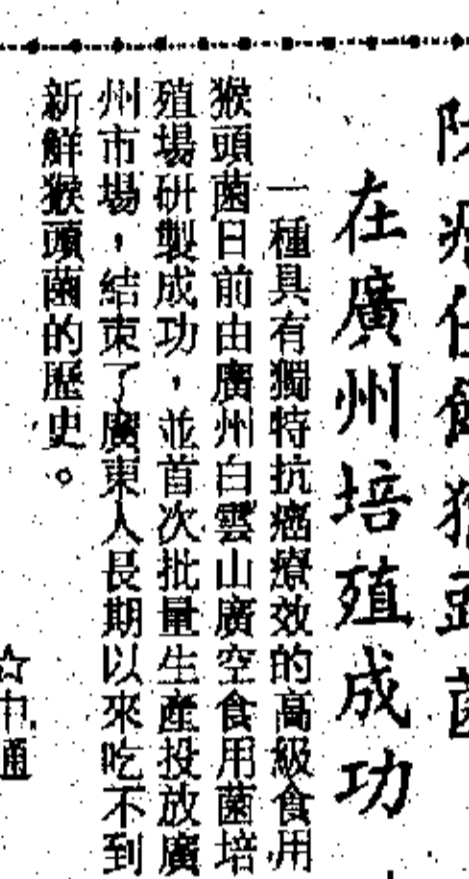 在廣州培殖成功
一種具有獨特抗癌療效的高級食用
猴頭菌日前由廣州白雲山廣空食用菌培
殖場研製成功，並首次批量生產投放廣
州市場，結束了廣東人長期以來吃不到
新鮮猴頭菌的歷史。
☆中通